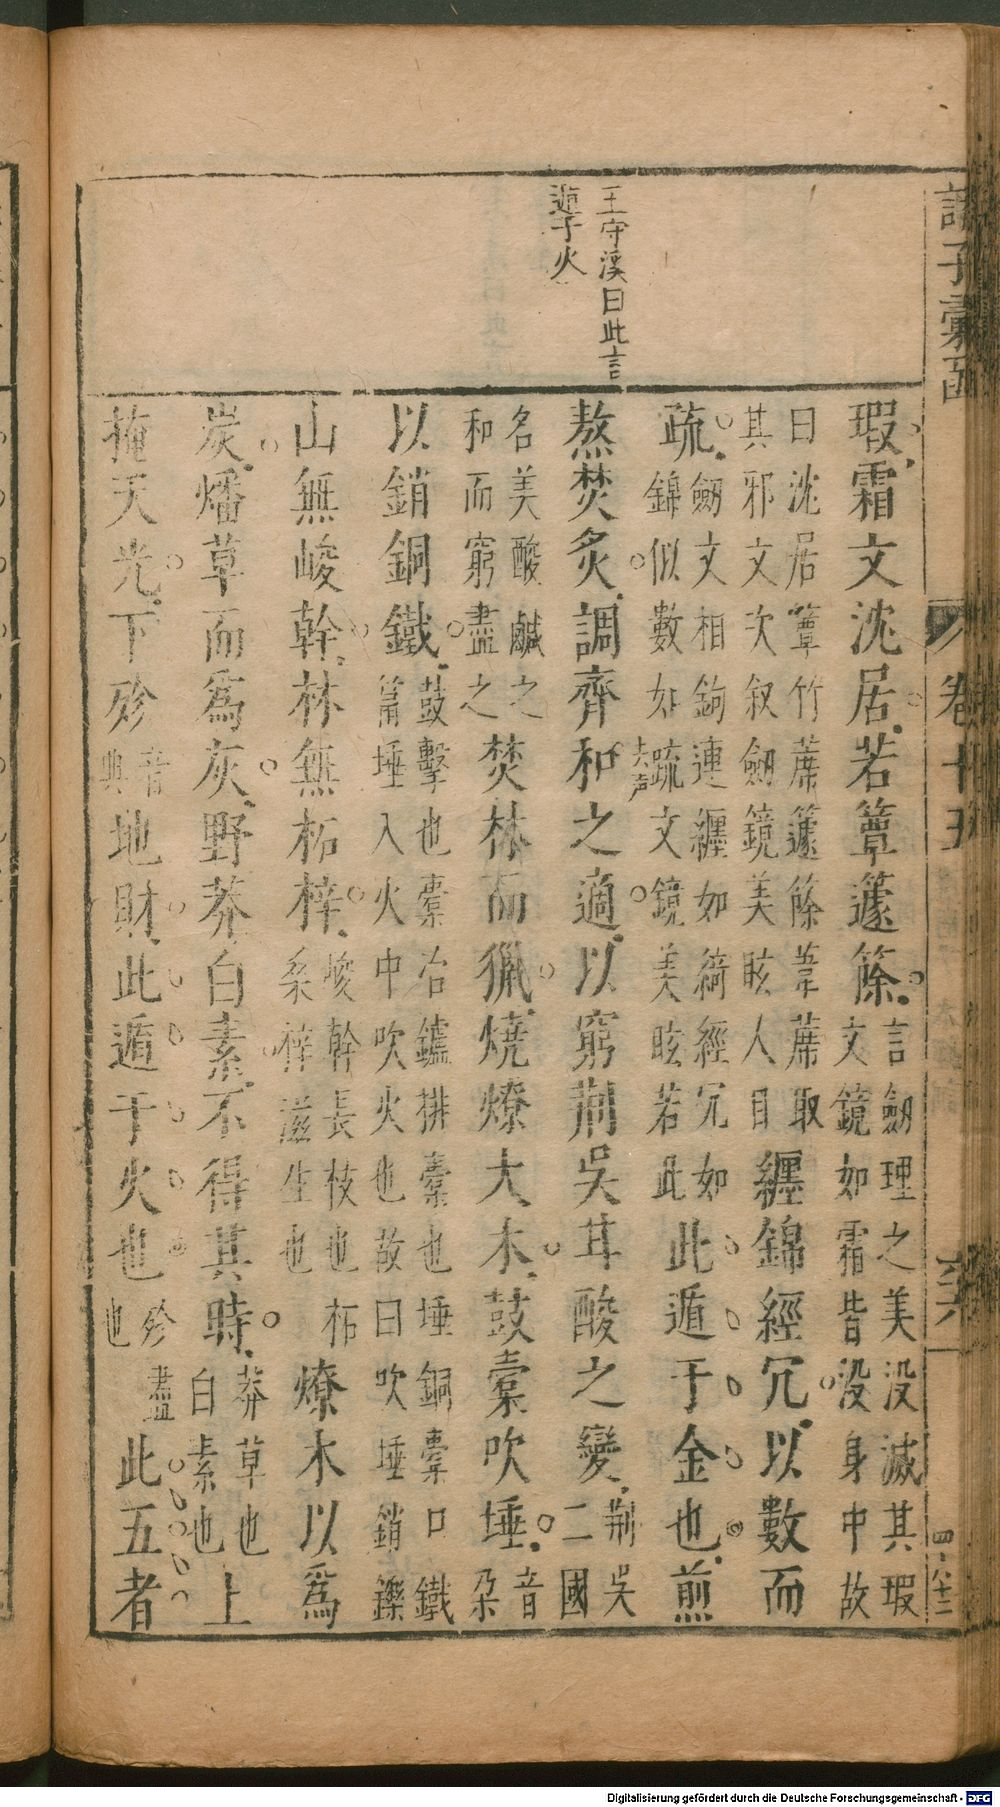 諸子彙函
卷十五
六
王守溪曰此言
遯于火
瑕霜文沈居若簟籧篨言劒理之美沒滅其瑕
文鏡如霜皆沒身中故
曰沈居簟竹蓆籧篨葦蓆取
其邪文次叙劒鏡美眩人目纏錦經冗以數而
疏劒文相鉤連纏如綺經冗如
錦似數如疏去聲文鏡美眩若此此遁于金也煎
熬焚炙調齊和之適以窮荆吳甘酸之變荆吳
二國
名美酸鹹之
和而窮盡之焚林而獵燒燎大木鼓橐吹埵音
朶
以銷銅鐵鼓擊也橐冶鑪排橐也埵銅橐口鐵
筩埵入火中吹火也故曰吹埵銷鑠
山無峻幹林無柘梓峻幹長枝也柘
桑梓滋生也燎木以爲
炭燔草而爲灰野莽白素不得其時莽草也
白素也上
掩天光下殄音
腆地財此遁于火也殄盡
也此五者
Digitalisierung gefördert durch die Deutsche Forschungsgemeinschaft - DFG